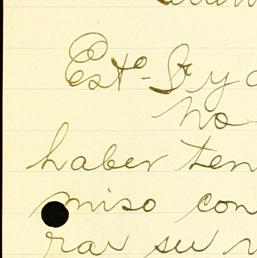 Est.º Sr. y a
No
haber ten
miso con
rar su